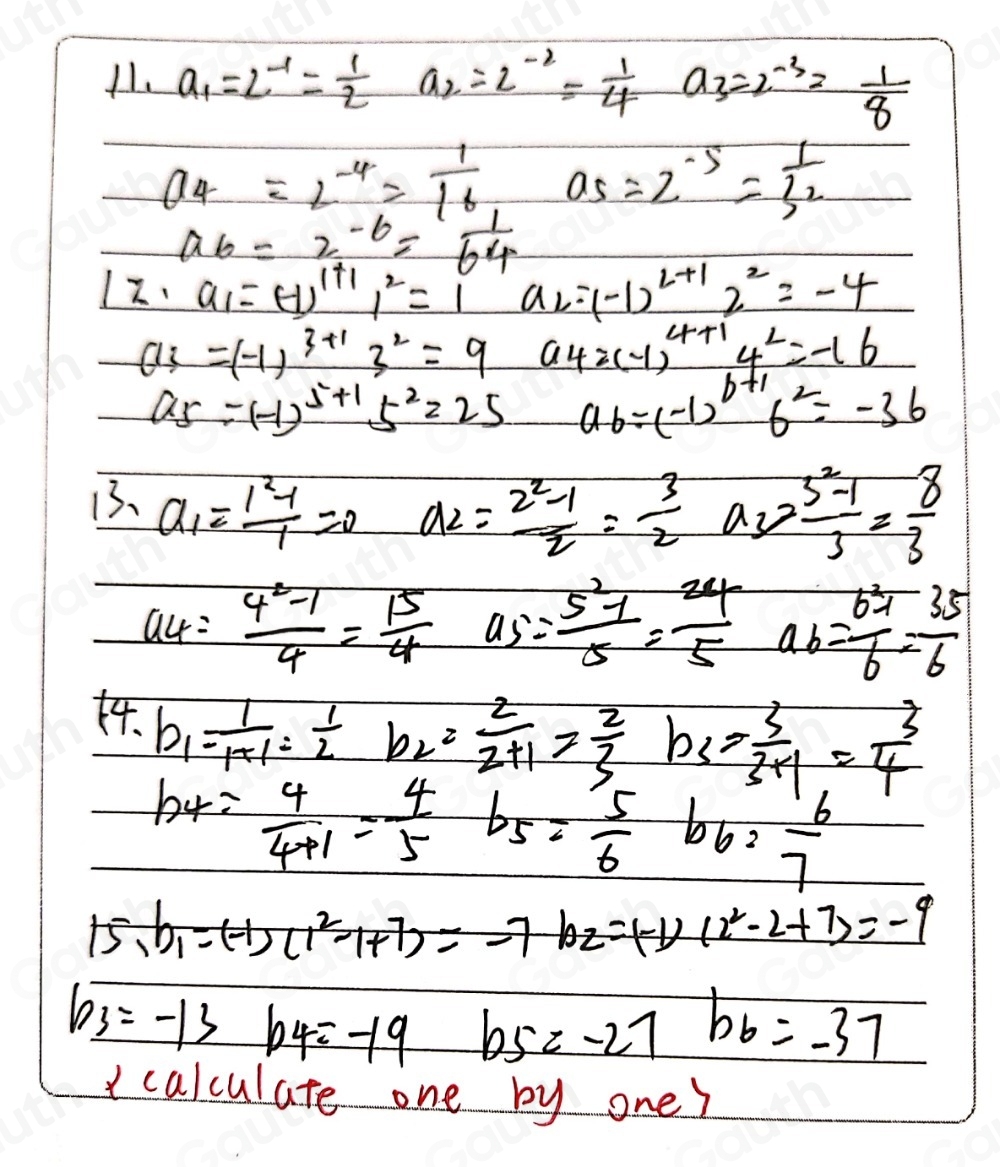 11. a₁=2⁻¹=1/2 a₂=2⁻²=1/4 a₃=2⁻³=1/8
a₄=2⁻⁴=1/16 a₅=2⁻⁵=1/32
a₆=2⁻⁶=1/64
12、a₁=(-1)¹⁺¹1²=1 a₂=(-1)²⁺¹2²=-4
a₃=(-1)³⁺¹3²=9 a₄=(-1)⁴⁺¹4²=-16
a₅=(-1)⁵⁺¹5²=25 a₆=(-1)⁶⁺¹6²=-36
13、a₁=(1²-1)/1=0 a₂=(2²-1)/2=3/2 a₃=(3²-1)/3=8/3
a₄=(4²-1)/4=15/4 a₅=(5²-1)/5=24/5 a₆=(6²-1)/6=35/6
14、b₁=1/(1+1)=1/2 b₂=2/(2+1)=2/3 b₃=3/(3+1)=3/4
b₄=4/(4+1)=4/5 b₅=5/6 b₆=6/7
15、b₁=(-1)(1²-1+7)=-7 b₂=(-1)(2²-2+7)=-9
b₃=-13 b₄=-19 b₅=-27 b₆=-37
(calculate one by one)
Gauth